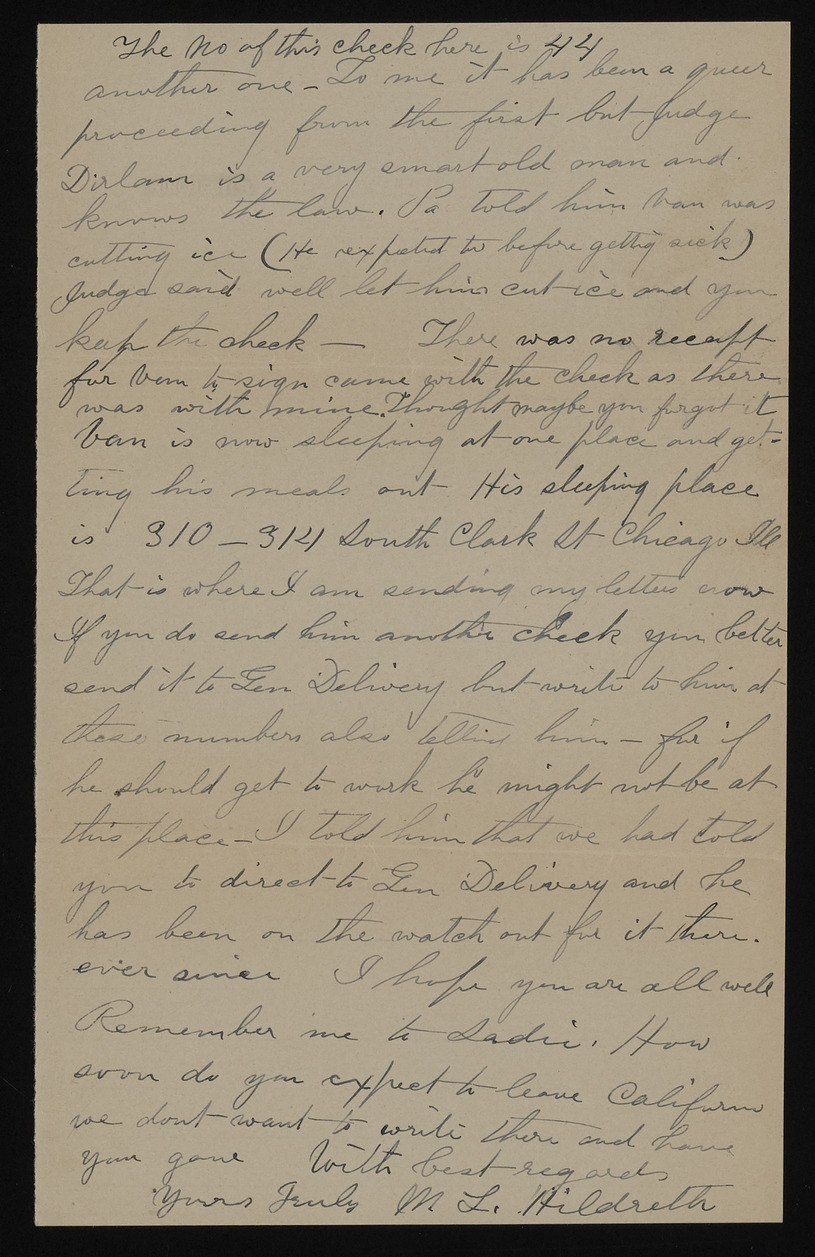 The No of this check here is 44
another one - To me it has been a queer
proceeding from the first but Judge
Dirlam is a very smart old man and
knows the law. Pa told him Van was
cutting ice (He expected to before gettig sick)
Judge said well let him cut ice and you
keep the check — There was no receipt
for Van to sign came with the check as there
was with mine. Thought maybe you forgot it
Van is now sleeping at one place and get-
ting his meals out His sleeping place
is 310 - 314 South Clark St Chicago Ill
That is where I am sending my letters now
If you do send him another check you better
send it to Gen Delivery but write to him at
these numbers also telling him - for if
he should get to work he might not be at
this place - I told him that we had told
you to direct to Gen Delivery and he
has been on the watch out for it there.
ever since I hope you are all well
Remember me to Sadie. How
soon do you expect to leave California
we dont want to write there and have
you gone With best regards
Yours Truly M L. Hildreth